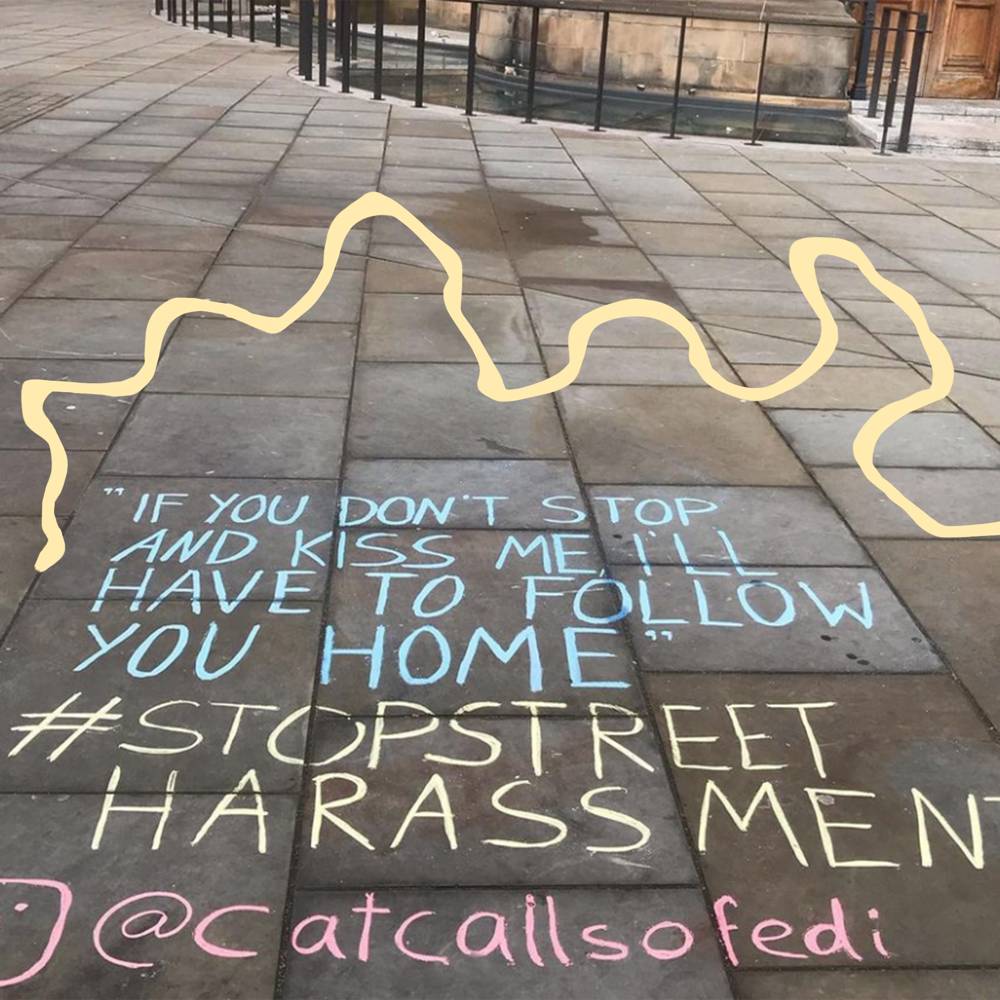 "IF YOU DON'T STOP
AND KISS ME, I'LL
HAVE TO FOLLOW
YOU HOME"
#STOPSTREET
HARASSMENT
@catcallsofedi